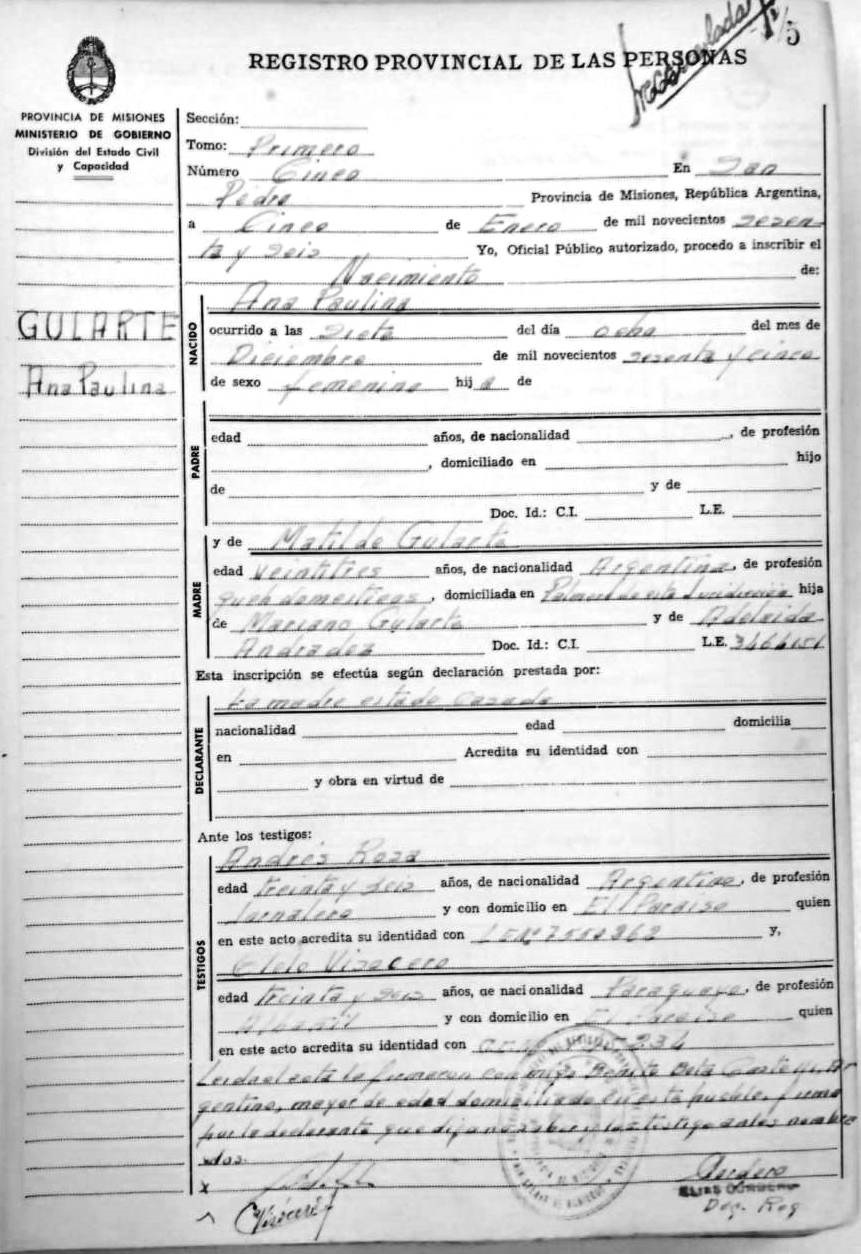 5
REGISTRO PROVINCIAL DE LAS PERSONAS
PROVINCIA DE MISIONES
MINISTERIO DE GOBIERNO
División del Estado Civil
y Capacidad
GULARTE
Ana Paulina
Sección:
Tomo: Primero
Número Cinco En San
Pedro Provincia de Misiones, República Argentina,
a Cinco de Enero de mil novecientos sesen
ta y seis Yo, Oficial Público autorizado, procedo a inscribir el
Nacimiento de:
NACIDO
Ana Paulina
ocurrido a las siete del día ocho del mes de
Diciembre de mil novecientos sesenta y cinco
de sexo femenino hij a de
PADRE
edad años, de nacionalidad , de profesión
, domiciliado en hijo
de y de
Doc. Id.: C.I. L.E.
MADRE
y de Matilde Gularte
edad veintitres años, de nacionalidad Argentina, de profesión
queh domesticos, domiciliada en de esta hija
de Mariano Gularte y de Adelaida
Andradez Doc. Id.: C.I. L.E.
Esta inscripción se efectúa según declaración prestada por:
DECLARANTE
La madre estado casada
nacionalidad edad domicilia
en Acredita su identidad con
y obra en virtud de
Ante los testigos:
TESTIGOS
Andrés Roza
edad treinta y seis años, de nacionalidad Argentino, de profesión
Jornalero y con domicilio en El Paraiso quien
en este acto acredita su identidad con L E Nº 7550363 y,
Clelo Visecero
edad treinta y seis años, de nacionalidad Paraguayo, de profesión
Albañil y con domicilio en El Paraiso quien
en este acto acredita su identidad con
Leida el acta la firmaron conmigo Benito Ar
gentino, mayor de edad domiciliado en este pueblo, firma
por la declarante que dijo no saber y los testigo antes nombra
dos.
x
ELIAS CORDERO
Deg. Reg